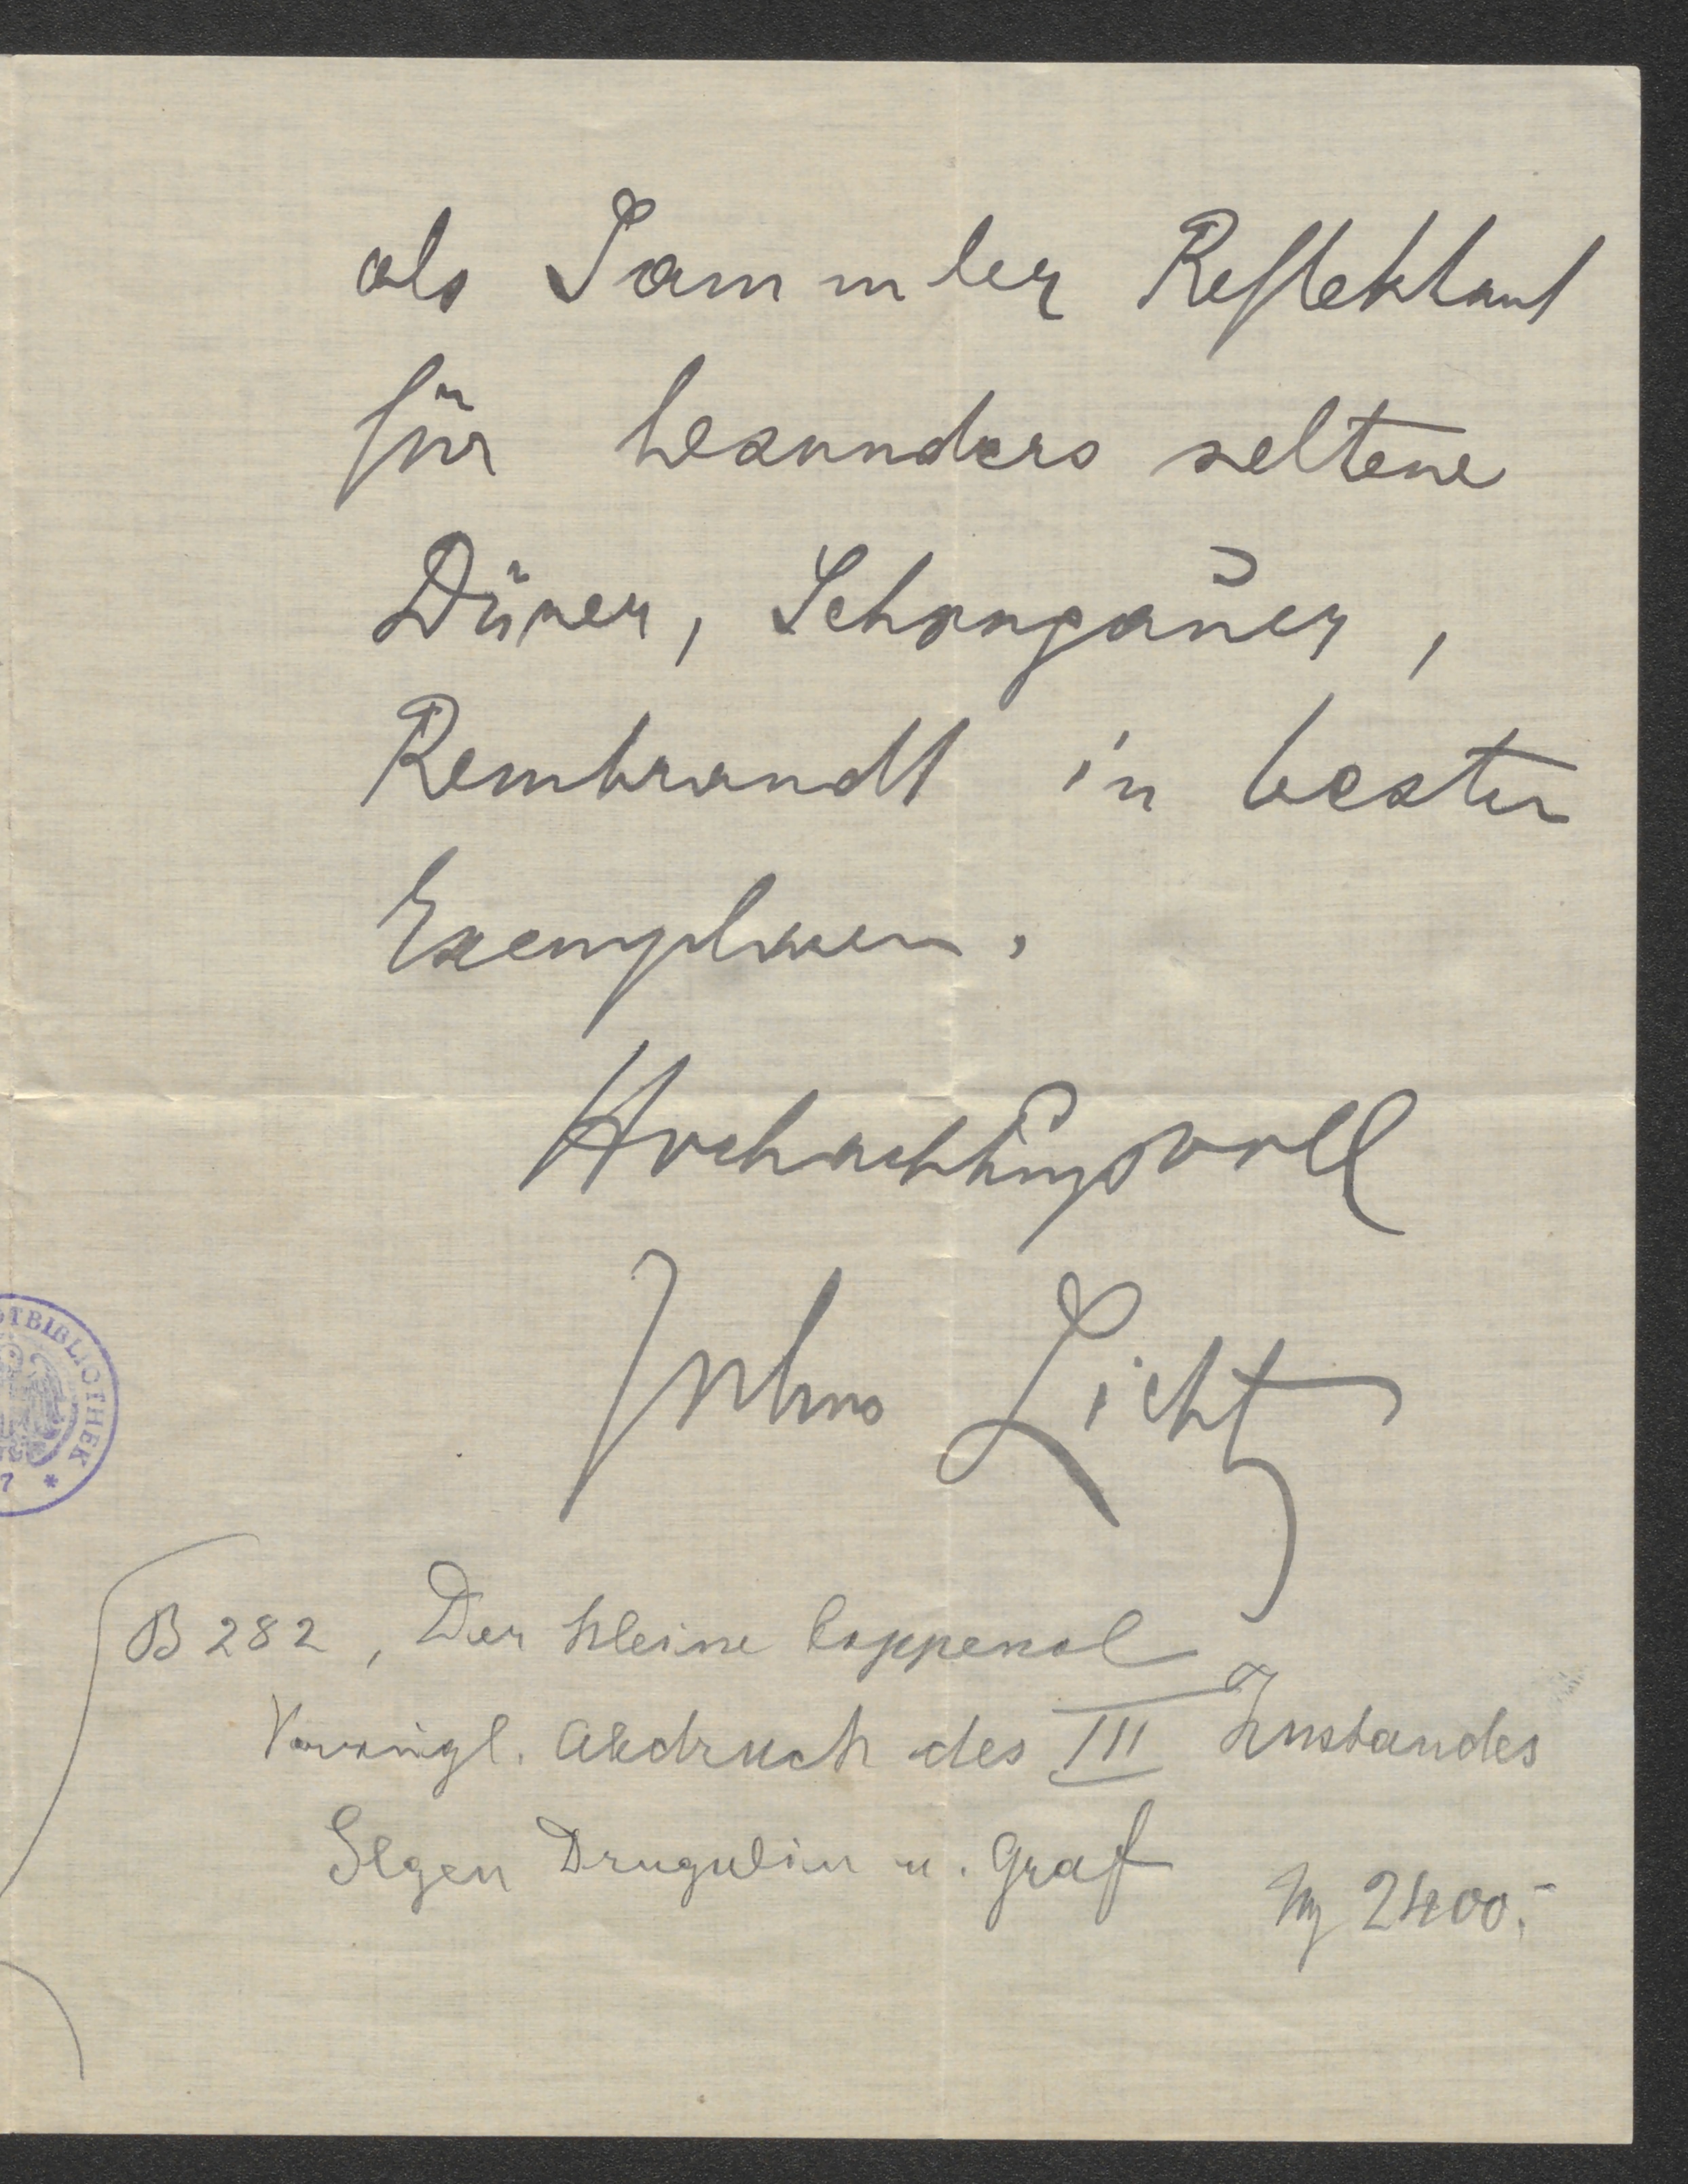 als Sammler Reflektant
für besonders seltene
Dürer, Schongauer,
Rembrandt in besten
Exemplaren.
Hochachtungsvoll
Julius Licht
TBIBLIOTHEK
7 *
B 282, Der kleine Coppenol
Vorzügl. Abdruck des III Zustandes
Slgen Drugulin u. Graf
M 2400.-